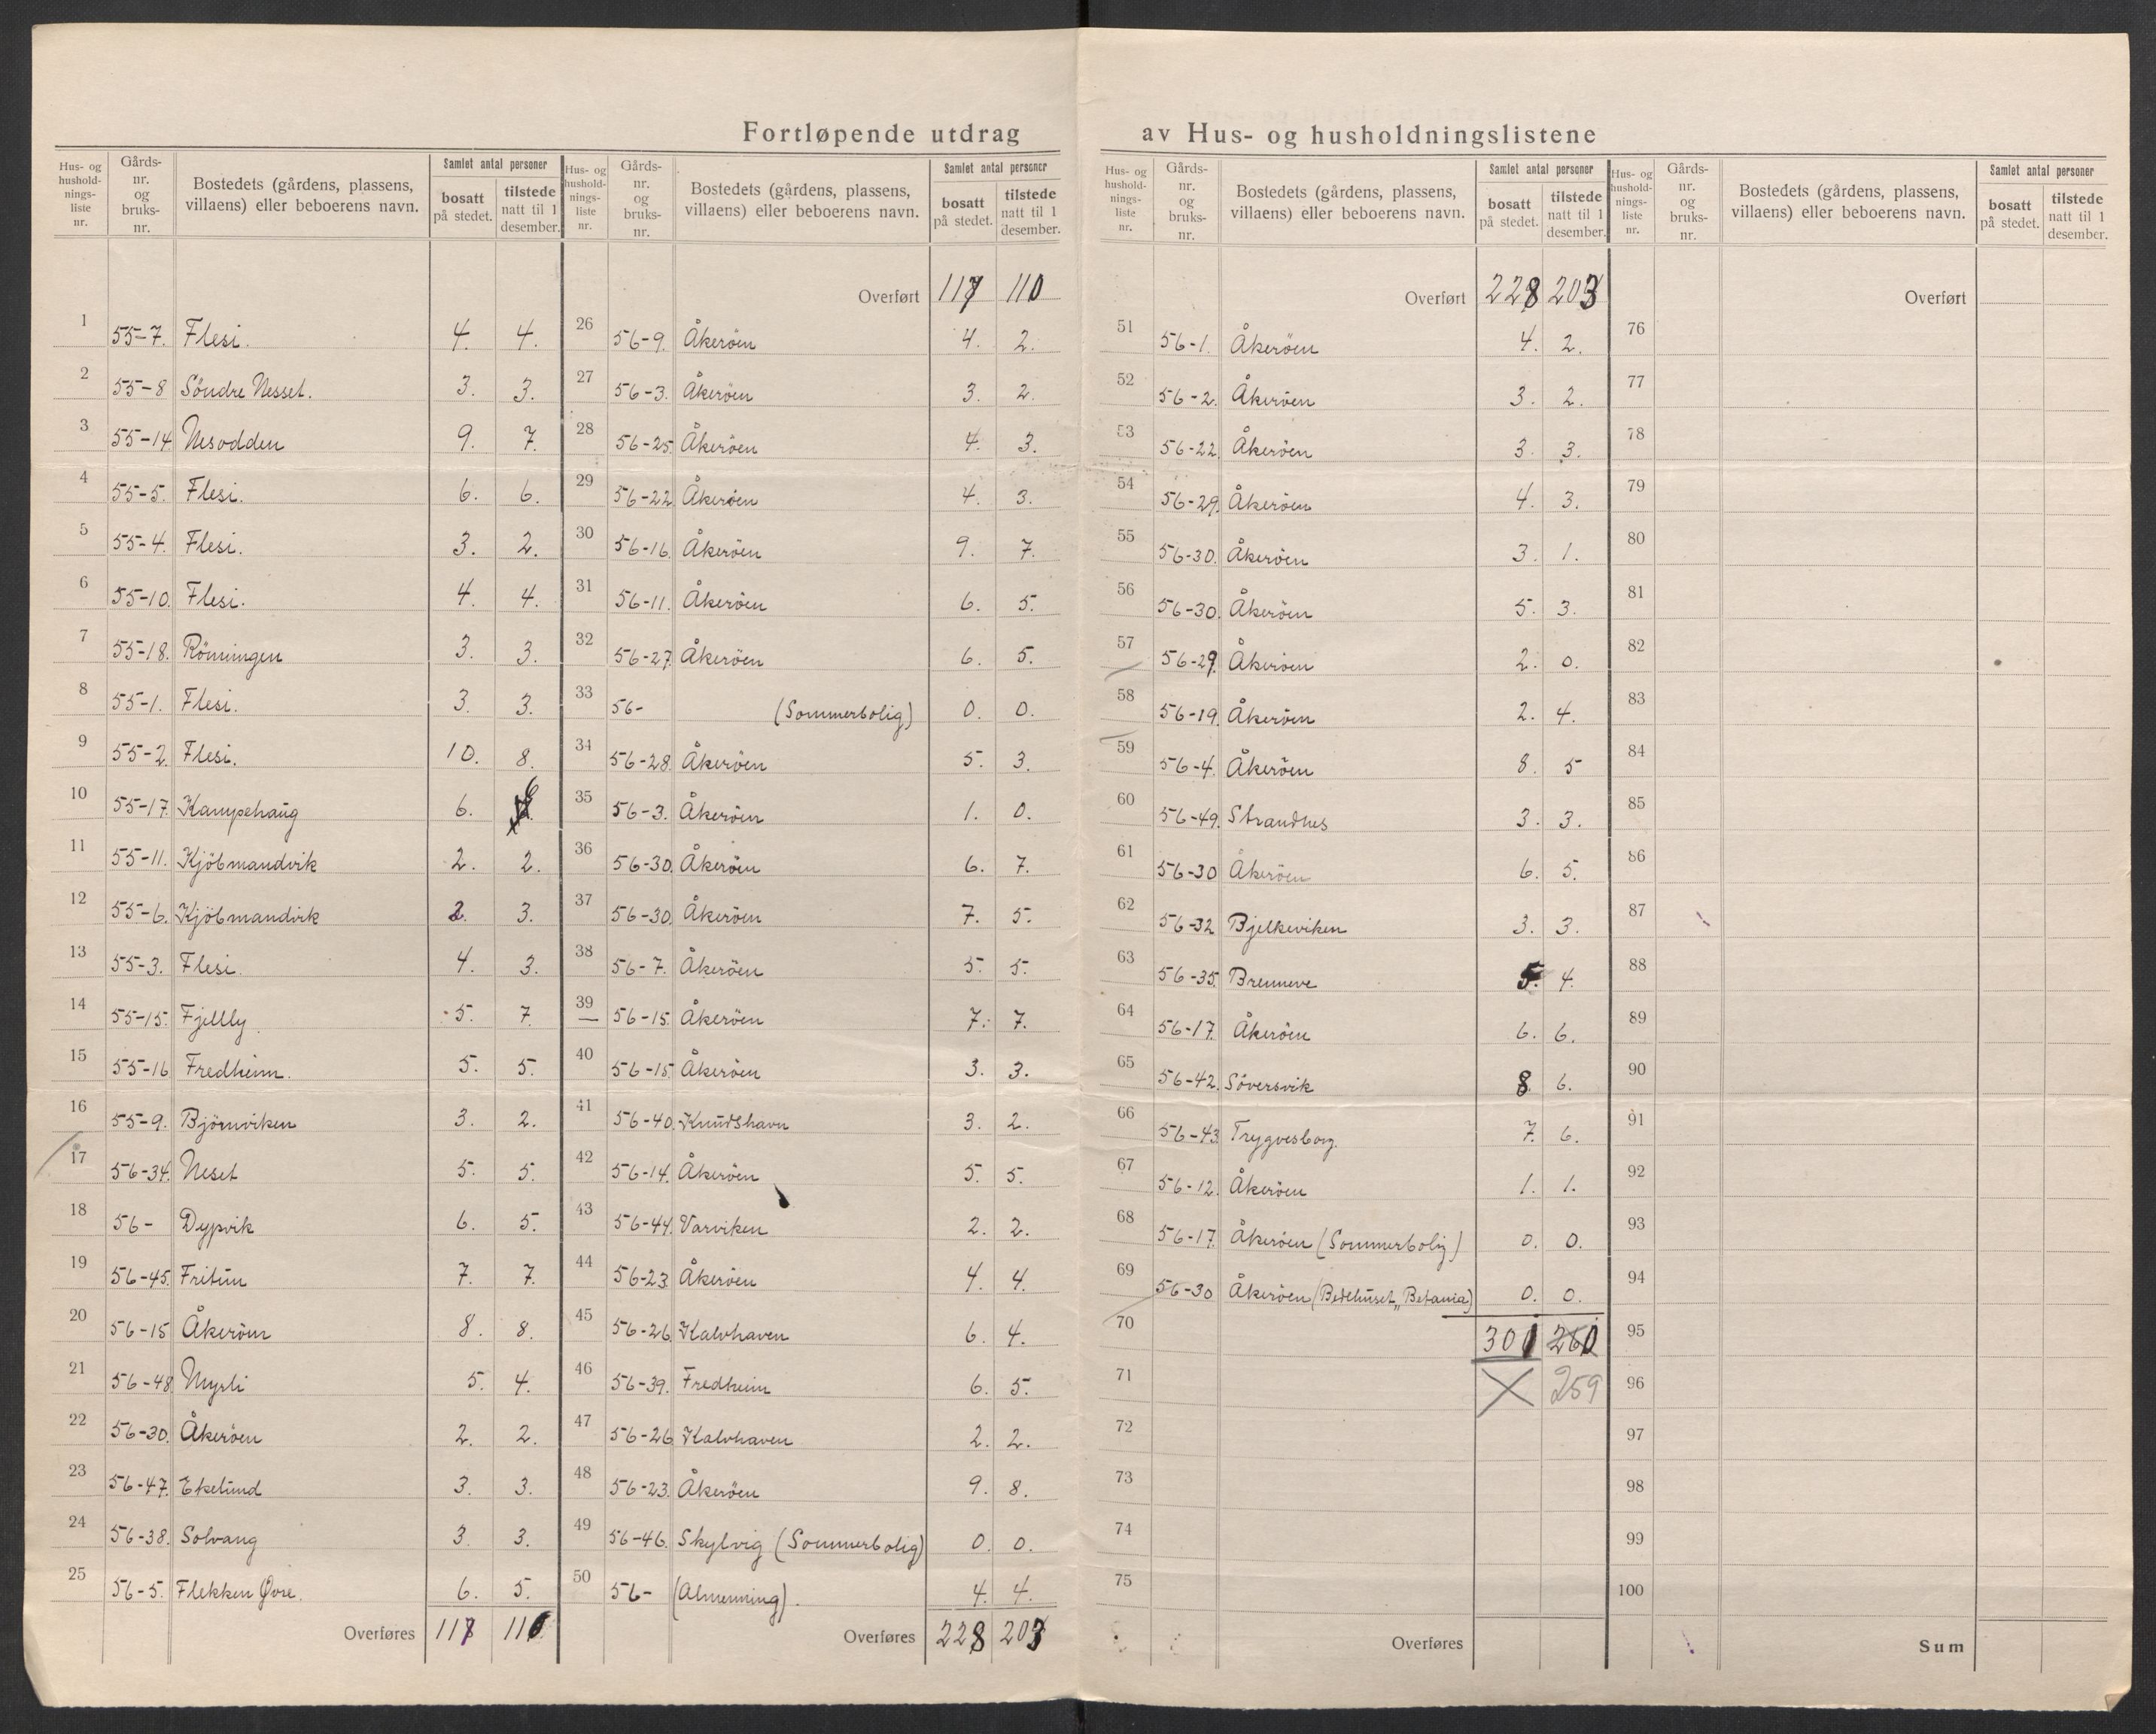 Fortløpende utdrag av Hus- og husholdningslistene
Hus- og husholdnings- liste nr. | Gårds- nr. og bruks- nr. | Bostedets (gårdens, plassens, villaens) eller beboerens navn. | Samlet antal personer | bosatt på stedet. | tilstede natt til 1 desember.
1 55-7. Flesi. 4. 4.
2 55-8 Söndre Nesset. 3. 3.
3 55-14 Nesodden 9. 7.
4 55-5. Flesi. 6. 6.
5 55-4. Flesi. 3. 2.
6 55-10. Flesi. 4. 4.
7 55-18. Rönningen 3. 3.
8 55-1. Flesi. 3. 3.
9 55-2. Flesi. 10. 8.
10 55-17. Kampehaug 6. 6
11 55-11. Kjöbmandvik 2. 2.
12 55-6. Kjöbmandvik 2. 3.
13 55-3. Flesi. 4. 3.
14 55-15. Fjellly. 5. 7.
15 55-16 Fredheim. 5. 5.
16 55-9. Björnviken 3. 2.
17 56-34. Neset 5. 5.
18 56- Dypvik 6. 5.
19 56-45. Fritun 7. 7.
20 56-15 Åkeröen 8. 8.
21 56-48 Myrli 5. 4.
22 56-30. Åkeröen 2. 2.
23 56-47. Ekelund 3. 3.
24 56-38. Solvang 3. 3.
25 56-5. Flekken Øvre. 6. 5.
Overføres 117 110
Hus- og husholdnings- liste nr. | Gårds- nr. og bruks- nr. | Bostedets (gårdens, plassens, villaens) eller beboerens navn. | Samlet antal personer | bosatt på stedet. | tilstede natt til 1 desember.
Overført 117 110
26 56-9. Åkeröen 4. 2.
27 56-3. Åkeröen 3. 2.
28 56-25. Åkeröen 4. 3.
29 56-22 Åkeröen 4. 3.
30 56-16. Åkeröen 9. 7.
31 56-11. Åkeröen 6. 5.
32 56-27. Åkeröen 6. 5.
33 56- (Sommerbolig) 0. 0.
34 56-28. Åkeröen 5. 3.
35 56-3. Åkeröen 1. 0.
36 56-30. Åkeröen 6. 7.
37 56-30. Åkeröen 7. 5.
38 56-7. Åkeröen 5. 5.
39 56-15. Åkeröen 7. 7.
40 56-15. Åkeröen 3. 3.
41 56-40. Knudshavn 3. 2.
42 56-14. Åkeröen 5. 5.
43 56-44. Varviken 2. 2.
44 56-23. Åkeröen 4. 4.
45 56-26. Kalvhaven 6. 4.
46 56-39. Fredheim 6. 5.
47 56-26 Kalvhaven 2. 2.
48 56-23. Åkeröen 9. 8.
49 56-46. Skylvig (Sommerbolig) 0. 0.
50 56- (Almenning). 4. 4.
Overføres 228 203
Hus- og husholdnings- liste nr. | Gårds- nr. og bruks- nr. | Bostedets (gårdens, plassens, villaens) eller beboerens navn. | Samlet antal personer | bosatt på stedet. | tilstede natt til 1 desember.
Overført 228 203
51 56-1. Åkeröen 4. 2.
52 56-2. Åkeröen 3. 2.
53 56-22. Åkeröen 3. 3.
54 56-29. Åkeröen 4. 3.
55 56-30. Åkeröen 3. 1.
56 56-30. Åkeröen 5. 3.
57 56-29. Åkeröen 2. 0.
58 56-19. Åkeröen 2. 4.
59 56-4. Åkeröen 8. 5
60 56-49. Strandnes 3. 3.
61 56-30 Åkeröen 6. 5.
62 56-32 Bjelkeviken 3. 3.
63 56-35. Brenneve 5. 4.
64 56-17. Åkeröen 6. 6.
65 56-42. Söversvik 8 6.
66 56-43. Trygvesborg. 7. 6.
67 56-12. Åkeröen 1. 1.
68 56-17. Åkeröen (Sommerbolig) 0. 0.
69 56-30 Åkeröen (Bedehuset „Betania) 0. 0.
70 301 260
71 259
72
73
74
75
Overføres
Hus- og husholdnings- liste nr. | Gårds- nr. og bruks- nr. | Bostedets (gårdens, plassens, villaens) eller beboerens navn. | Samlet antal personer | bosatt på stedet. | tilstede natt til 1 desember.
Overført
76
77
78
79
80
81
82
83
84
85
86
87
88
89
90
91
92
93
94
95
96
97
98
99
100
Sum